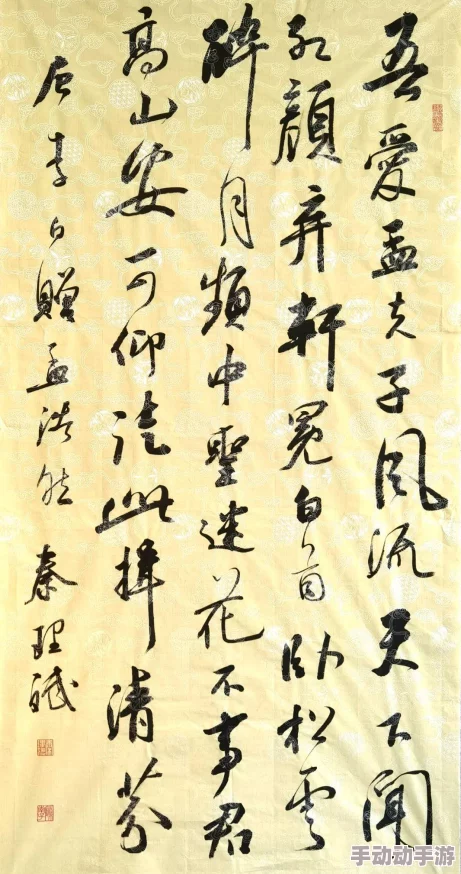 吾愛孟夫子風流天下聞
紅顔弃軒冕白首臥松雲
醉月頻中聖迷花不事君
高山安可仰徒此揖清芬
唐李白贈孟浩然 秦理斌
手动动手游